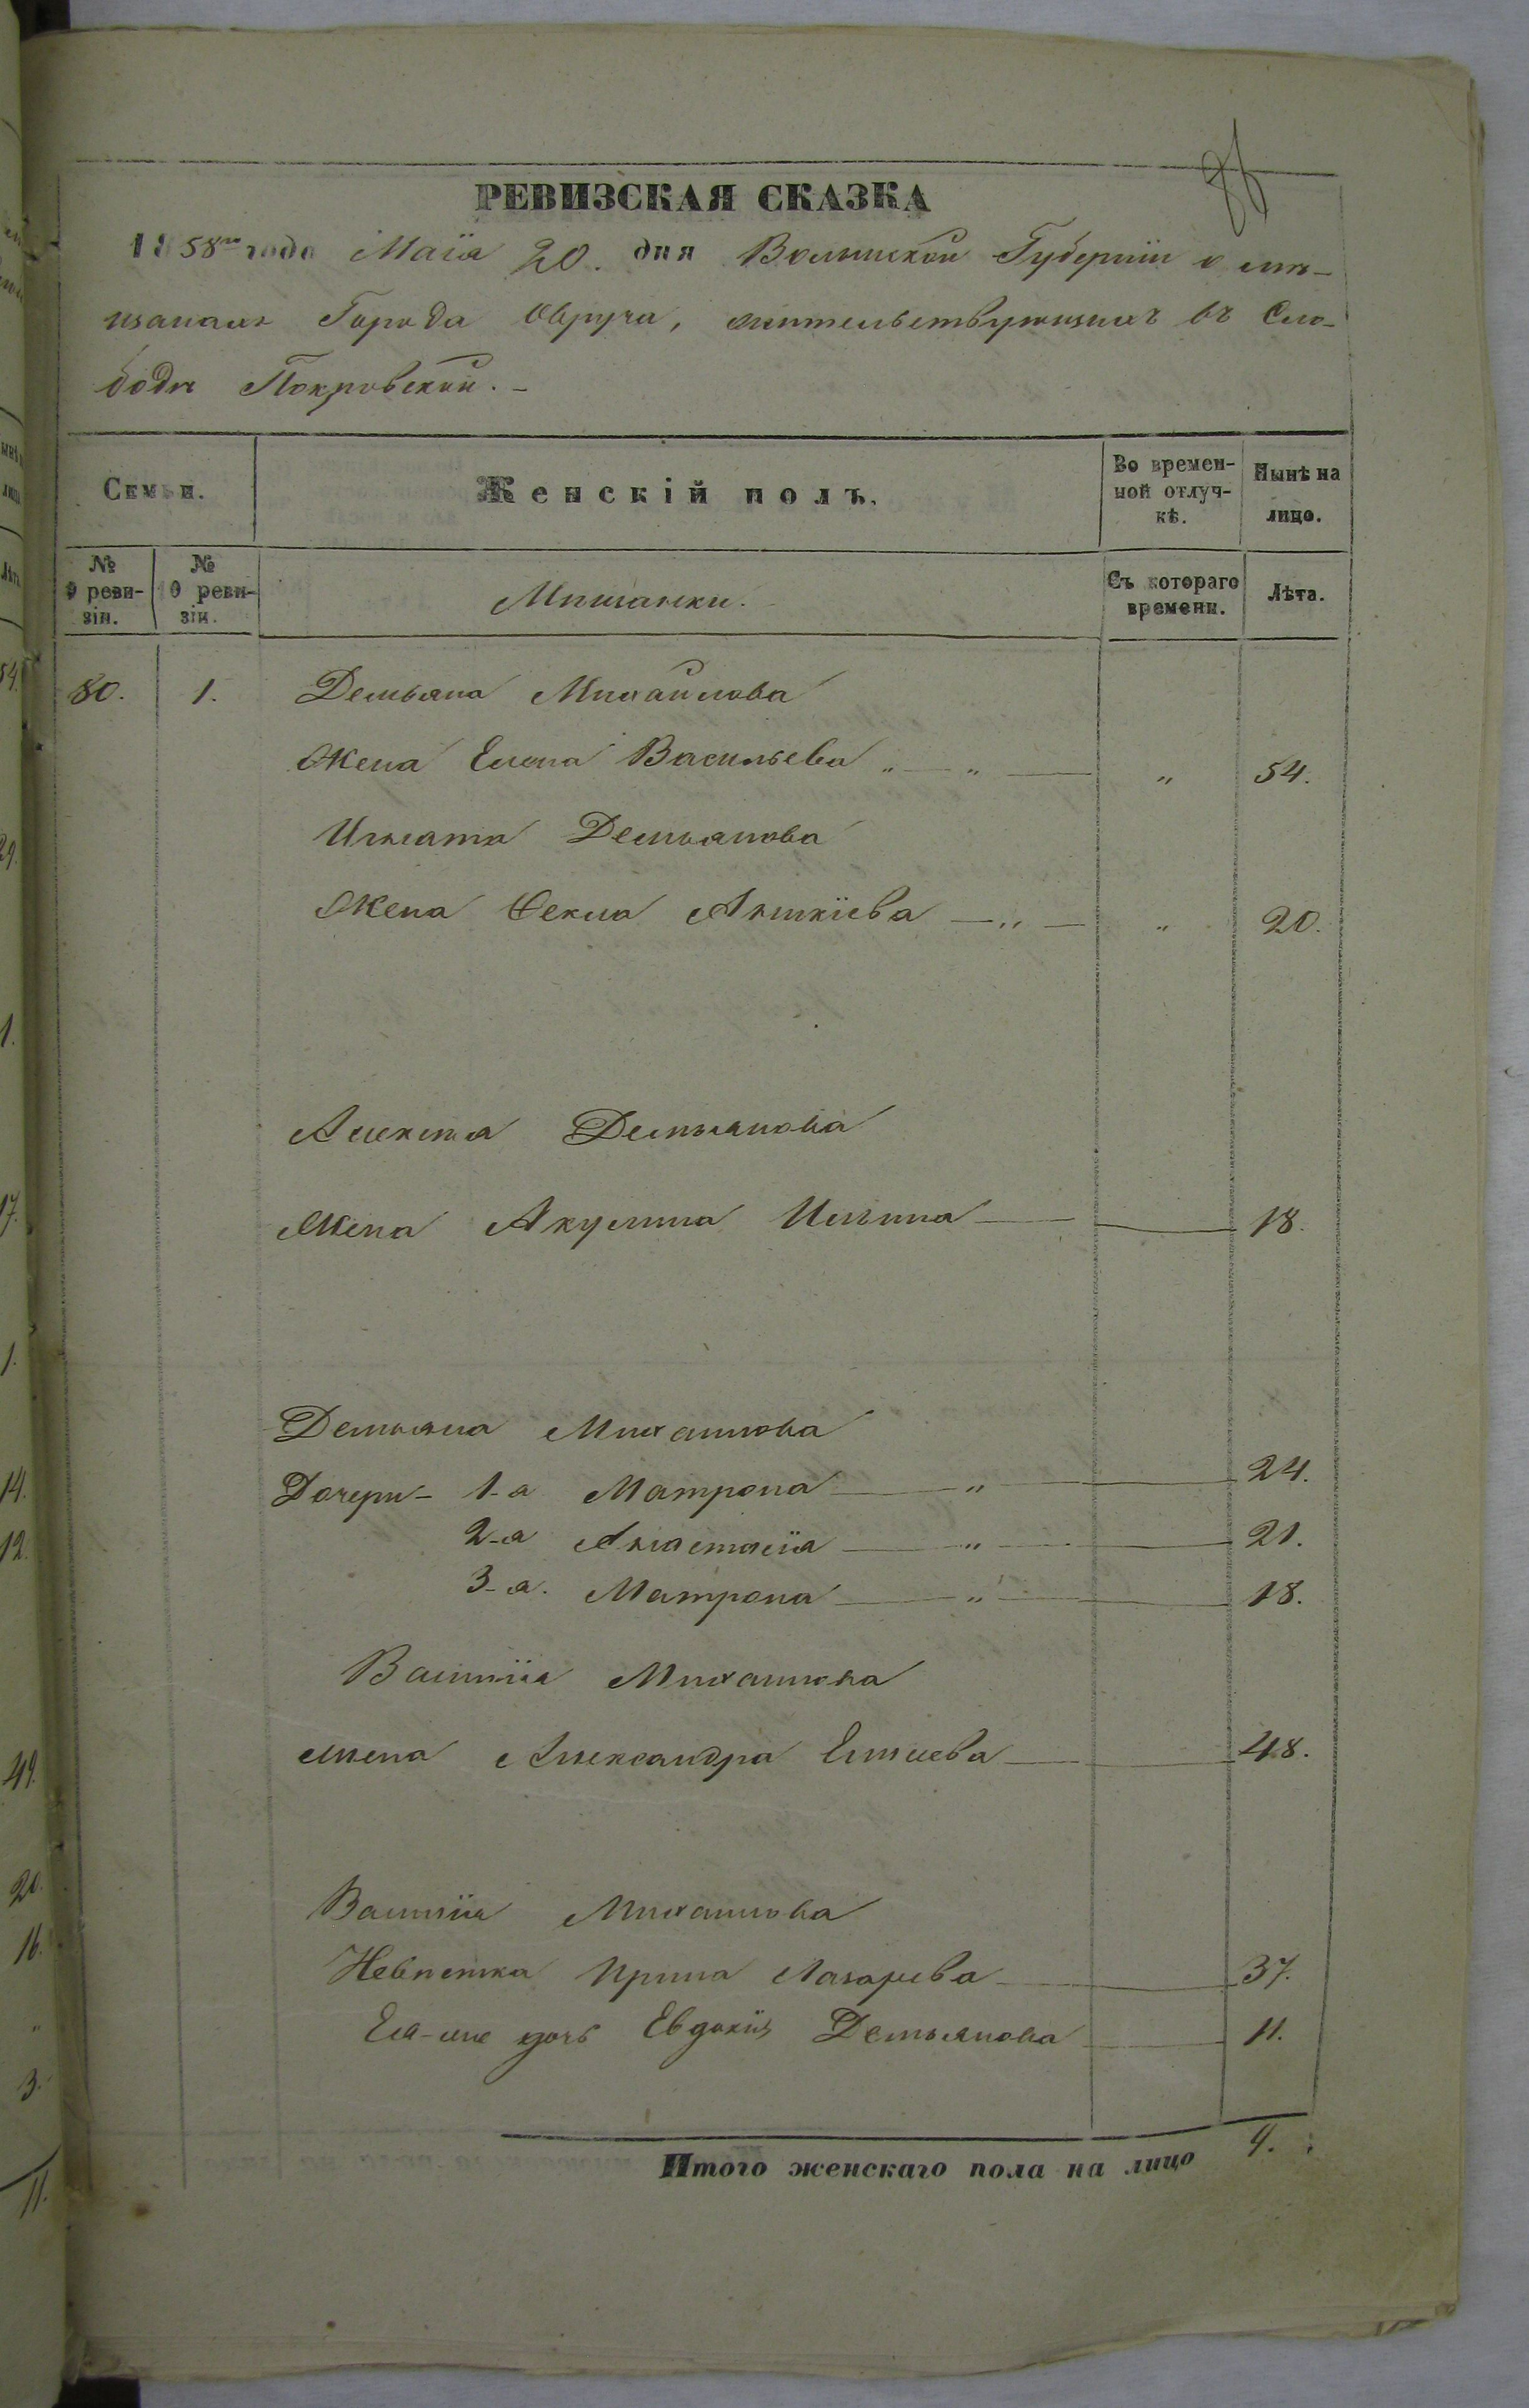 РЕВИЗСКАЯ СКАЗКА
1858го года Маїя 20. дня Волынской Губерніи о мѣ-
щанахъ Города Овруча, жительствующихъ въ Сло-
бодѣ Покровской.
Семьи.
Женскій полъ.
Во времен-
ной отлуч-
кѣ.
Нынѣ на
лицо.
№
9 реви-
зіи.
№
10 реви-
зіи.
Мѣщанки.
Съ котораго
времени.
Лѣта.
80. 1. Демьяна Михайлова
Жена Елена Васильева „ — „ — „ 54.
Игната Демьянова
Жена Ѳекла — „ — „ 20.
Алексѣя Демьянова
Жена Акулина Ильина — 18.
Демьяна Михайлова
Дочери - 1-а Матрона — „ — 24.
2-а Анастасія — „ — 21.
3-а. Матрона — „ — 18.
Василія Михайлова
жена Александра — 48.
Василія Михайлова
Невѣстка Ирина Лазарева — 37.
Ея-же дочь Евдокія Демьянова — 11.
Итого женскаго пола на лицо 9.